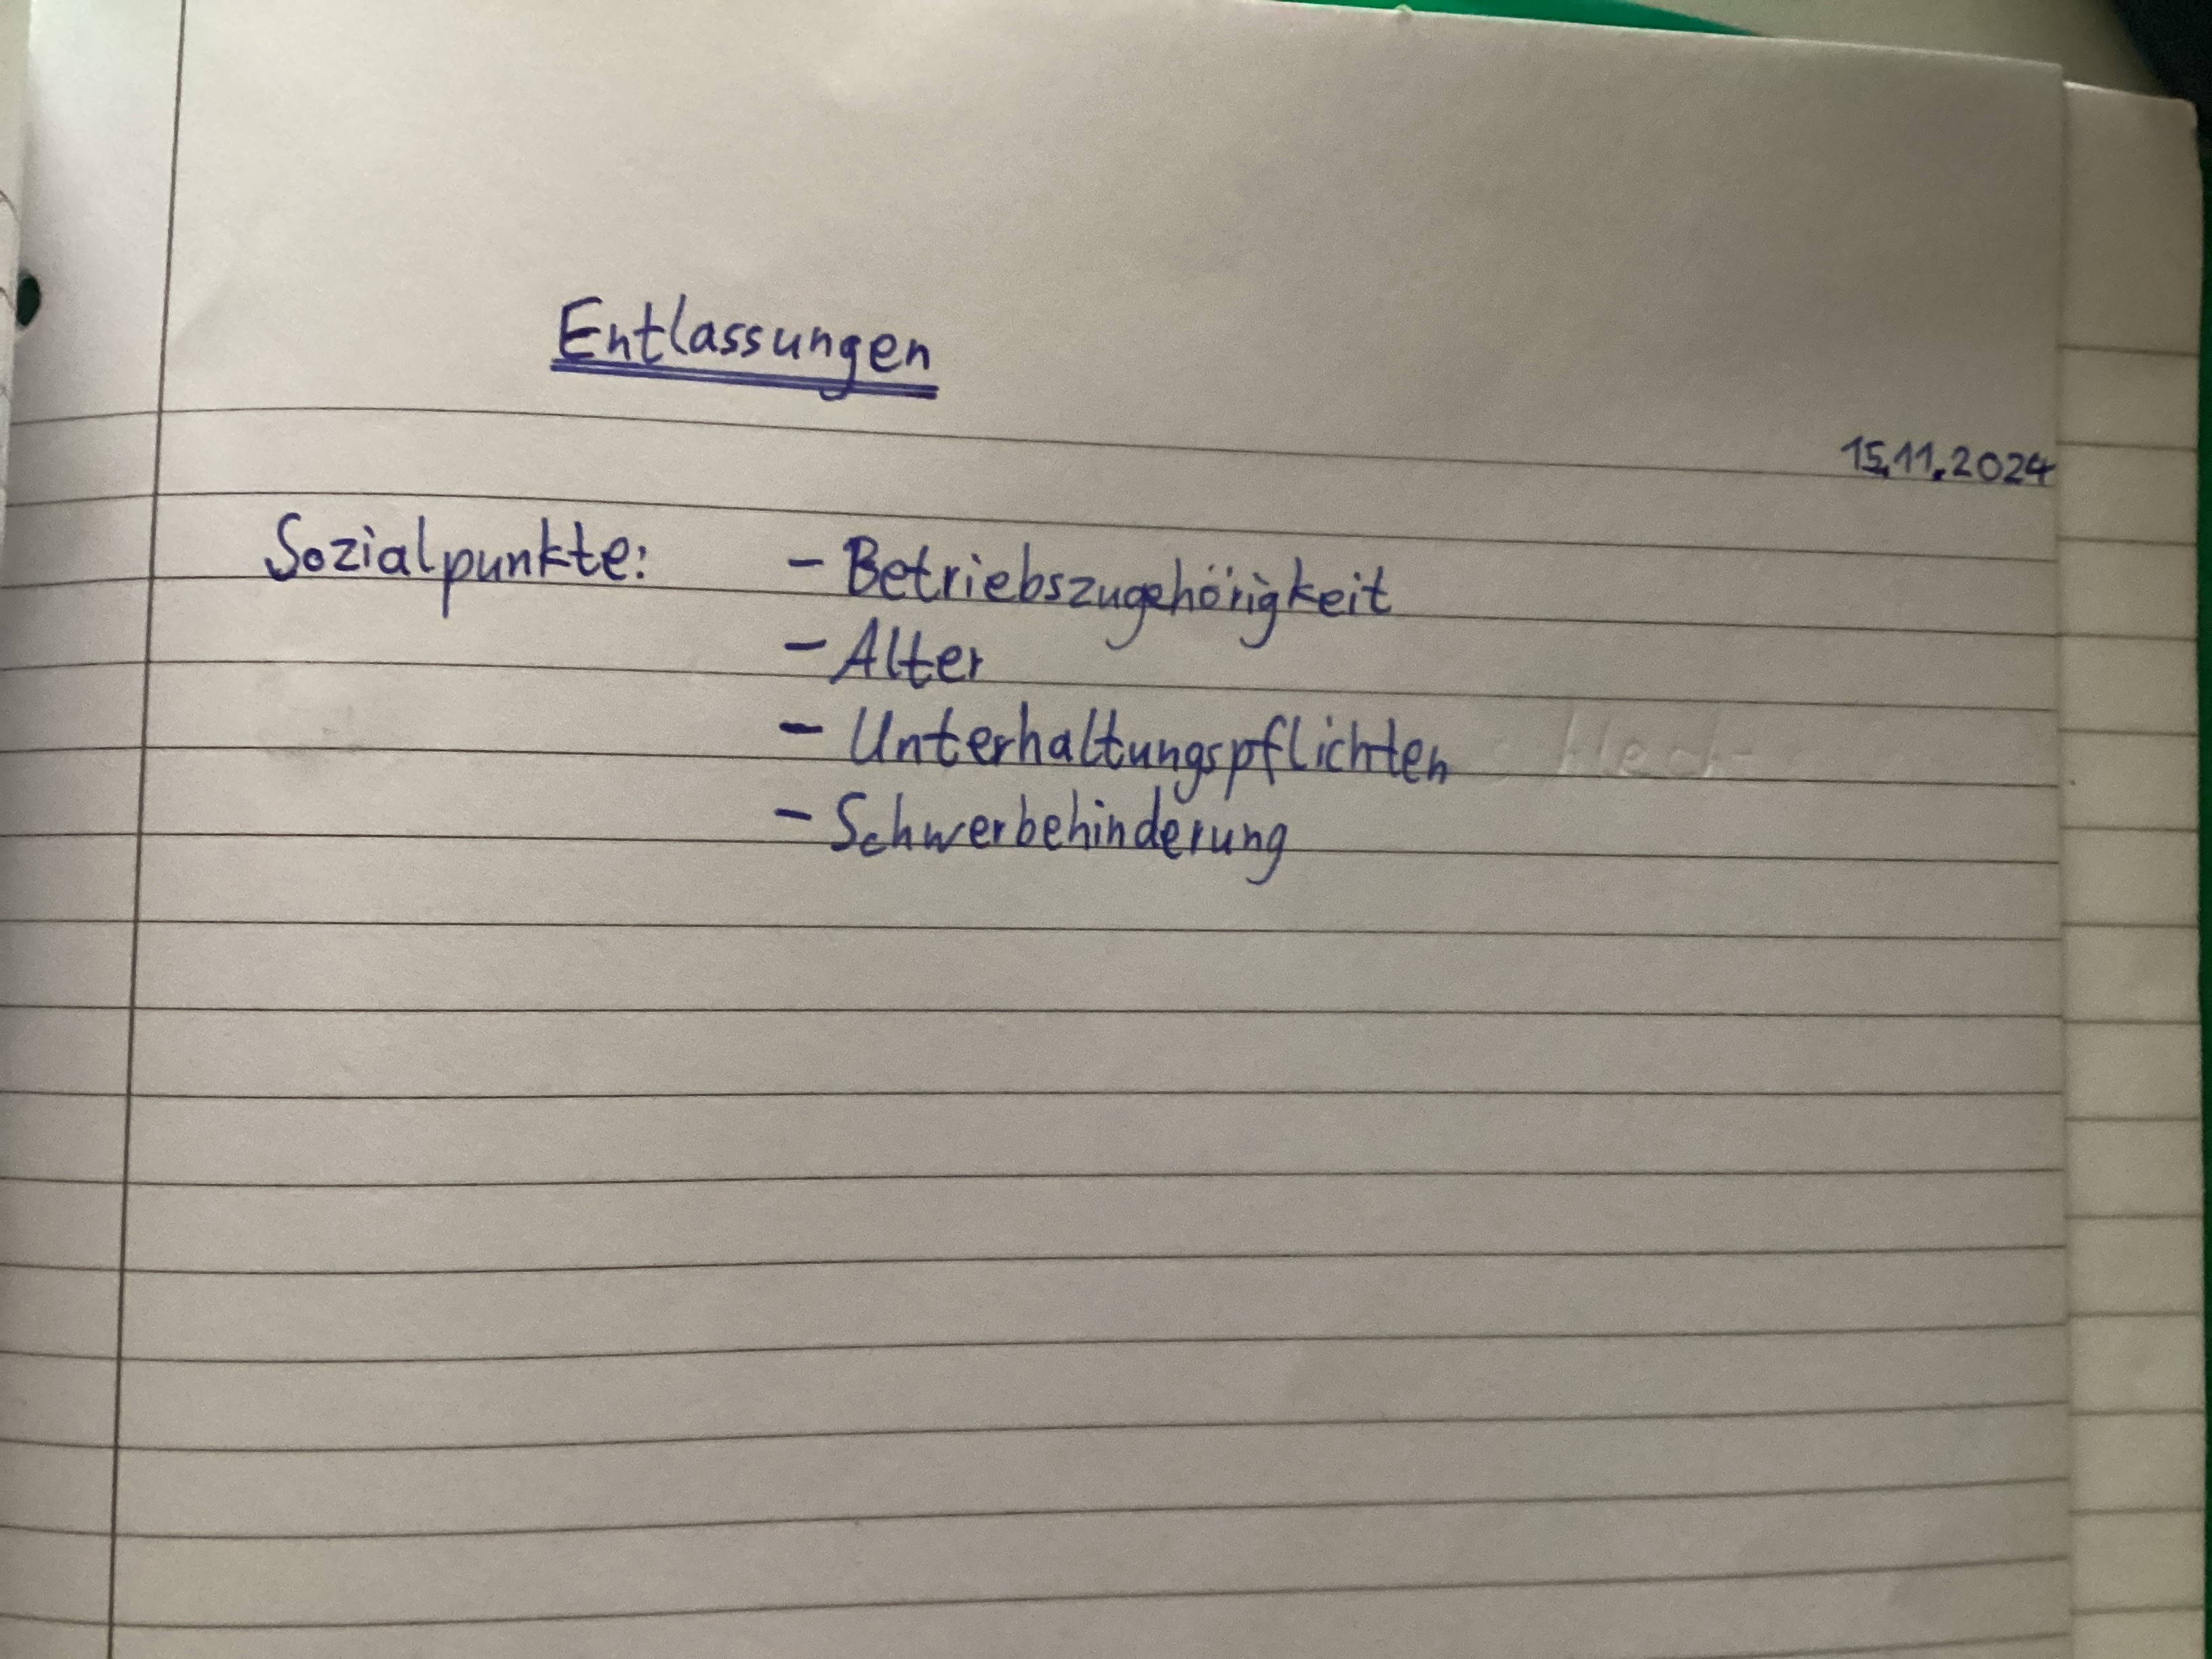 Entlassungen
15.11.2024
Sozialpunkte: - Betriebszugehörigkeit
- Alter
- Unterhaltungspflichten
- Schwerbehinderung